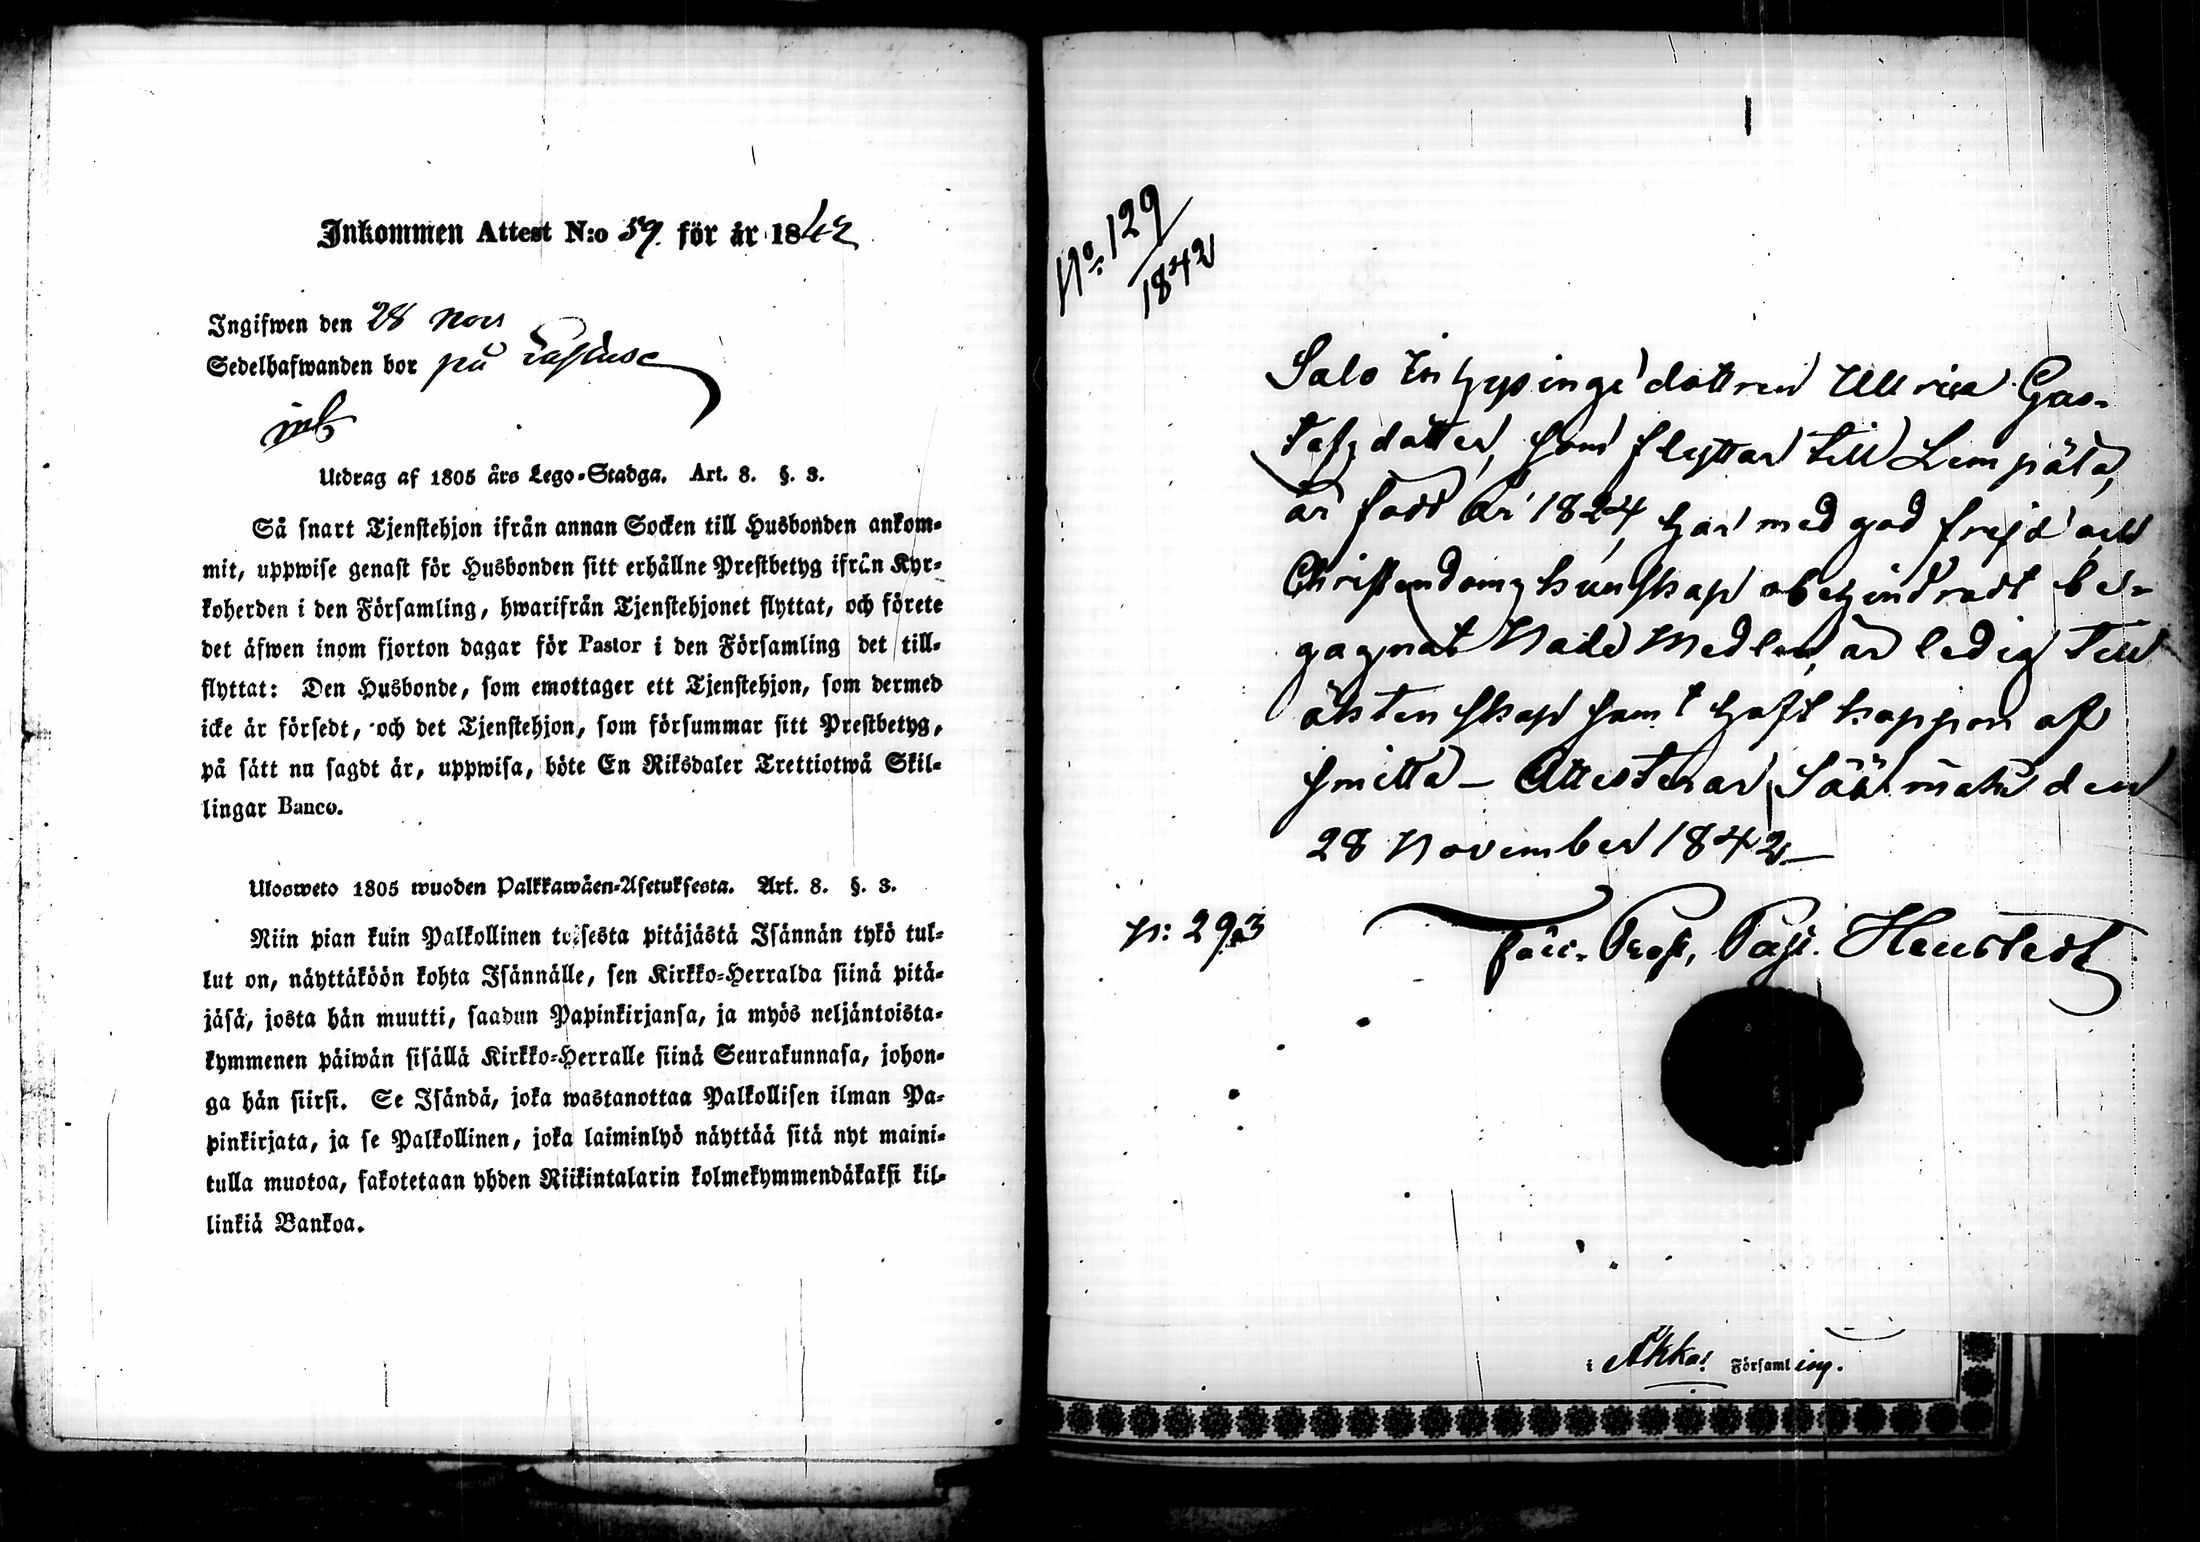 Inkommen Attest N:o 59. för år 1842
Ingifwen den 28 Nov
Sedelhafwanden bor på
Utdrag af 1805 års Lego-Stadga. Art. 8. §. 3.
Så snart Tjenstehjon ifrån annan Socken till Husbonden ankom-
mit, uppwise genast för Husbonden sitt erhållne Prestbetyg ifrån Kyr-
koherden i den Församling, hwarifrån Tjenstehjonet flyttat, och förete
det äfwen inom fjorton dagar för Pastor i den Församling det till-
flyttat: Den Husbonde, som emottager ett Tjenstehjon, som dermed
icke är försedt, och det Tjenstehjon, som försummar sitt Prestbetyg,
på sätt nu sagdt är, uppwisa, böte En Riksdaler Trettiotwå Skil-
lingar Banco.
Ulosweto 1805 wuoden Palkkawäen-Asetuksesta. Art. 8. §. 3.
Niin pian kuin Palkollinen toisesta pitäjästä Isännän tykö tul-
lut on, näyttäköön kohta Isännälle, sen Kirkko-Herralda siinä pitä-
jäsä, josta hän muutti, saadun Papinkirjansa, ja myös neljäntoista-
kymmenen päiwän sisällä Kirkko-Herralle siinä Seurakunnasa, johon-
ga hän siirsi. Se Isändä, joka wastanottaa Palkollisen ilman Pa-
pinkirjata, ja se Palkollinen, joka laiminlyö näyttää sitä nyt maini-
tulla muotoa, sakotetaan yhden Riikintalarin kolmekymmendäkaksi kil-
linkiä Bankoa.
No: 129
1842
Salo Inhysinge dottren Ullrica Gus-
tafsdotter, som flyttar till Lempäla,
är född År 1824, har med god frejd och
Christendoms kunskap obehindradt be-
gagnat Nåde Medlen, är ledig till
äktenskap samt haft koppor af
smitta – Attesterar Sääxmäki den
28 November 1842 –
N: 293
Past.
i Akkas Församling.